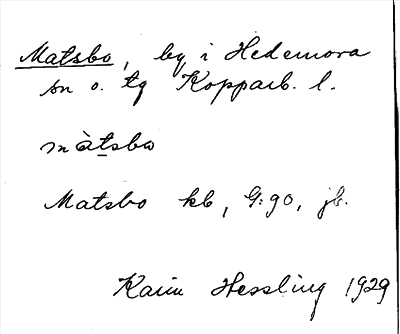 Matsbo, by i Hedemora
sn o. tg Kopparb. l.
màtsbω
Matsbo kb, G:90, jb.
Karin Hessling 1929